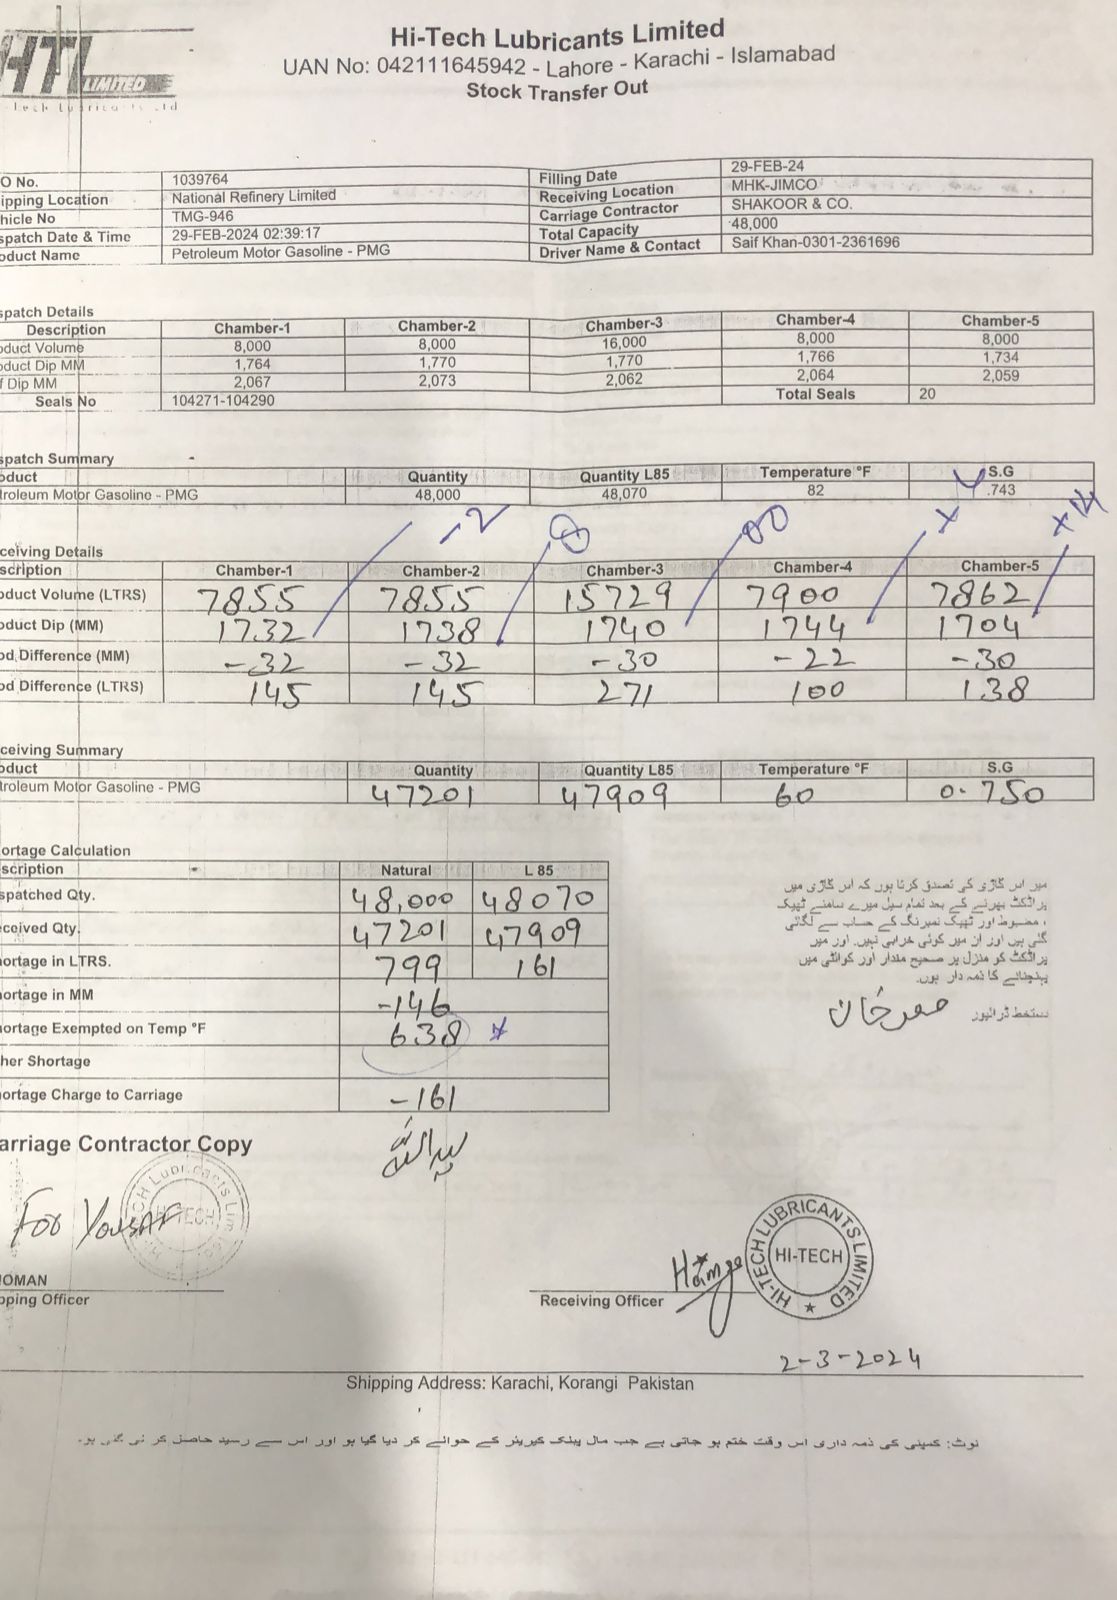 HTL
LIMITED
Hi-Tech Lubricants Limited
UAN No: 042111645942 - Lahore - Karachi - Islamabad
Stock Transfer Out
O No. 1039764 Filling Date 29-FEB-24
ipping Location National Refinery Limited Receiving Location MHK-JIMCO
hicle No TMG-946 Carriage Contractor SHAKOOR & CO.
spatch Date & Time 29-FEB-2024 02:39:17 Total Capacity 48,000
oduct Name Petroleum Motor Gasoline - PMG Driver Name & Contact Saif Khan-0301-2361696
spatch Details
Description Chamber-1 Chamber-2 Chamber-3 Chamber-4 Chamber-5
oduct Volume 8,000 8,000 16,000 8,000 8,000
oduct Dip MM 1,764 1,770 1,770 1,766 1,734
f Dip MM 2,067 2,073 2,062 2,064 2,059
Seals No 104271-104290 Total Seals 20
spatch Summary
oduct Quantity Quantity L85 Temperature °F S.G
troleum Motor Gasoline - PMG 48,000 48,070 82 .743
-2 0 00 +4 +14
ceiving Details
scription Chamber-1 Chamber-2 Chamber-3 Chamber-4 Chamber-5
oduct Volume (LTRS) 7855 7855 15729 7900 7862
oduct Dip (MM) 1732 1738 1740 1744 1704
od Difference (MM) -32 -32 -30 -22 -30
od Difference (LTRS) 145 145 271 100 138
ceiving Summary
oduct Quantity Quantity L85 Temperature °F S.G
troleum Motor Gasoline - PMG 47201 47909 60 0.750
ortage Calculation
scription Natural L 85
spatched Qty. 48,000 48070
ceived Qty. 47201 47909
ortage in LTRS. 799 161
ortage in MM -146
ortage Exempted on Temp °F 638
her Shortage
ortage Charge to Carriage -161
میں اس گاڑی کی تصدق کرتا ہوں کہ اس گاڑی میں
پراڈکٹ بھرنے کے بعد تمام سیل میرے سامنے ٹھیک
، مضبوط اور ٹھیک نمبرنگ کے حساب سے لگائی
گئی ہیں اور ان میں کوئی خرابی نہیں. اور میں
پراڈکٹ کو منزل پر صحیح مقدار اور کوالٹی میں
پہنچانے کا ذمہ دار ہوں.
دستخط ڈرائیور
arriage Contractor Copy
For Yousaf
HI-TECH
OMAN
pping Officer
Receiving Officer Hamza
HI-TECH LUBRICANTS LIMITED
HI-TECH
2-3-2024
Shipping Address: Karachi, Korangi Pakistan
نوٹ: کمپنی کی ذمہ داری اس وقت ختم ہو جاتی ہے جب مال بینک کیریئر کے حوالے کر دیا گیا ہو اور اس سے رسید حاصل کر لی گئی ہو.